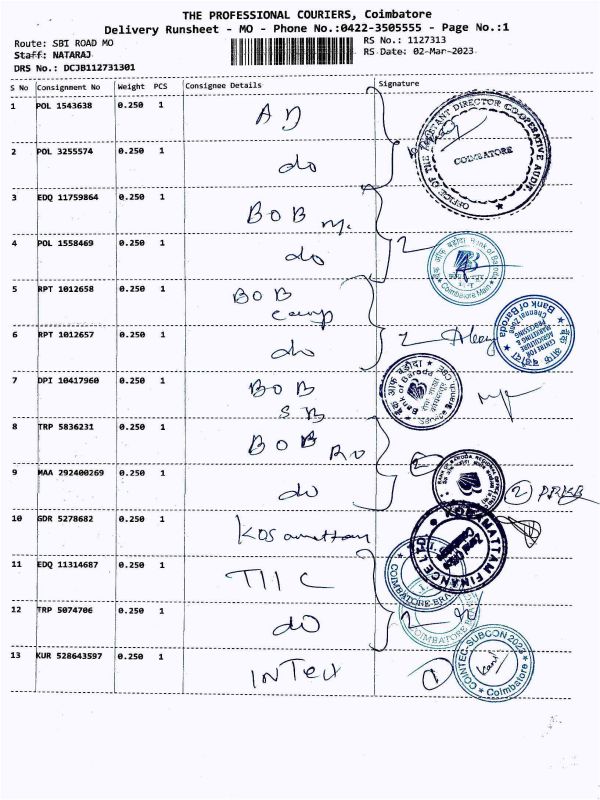 THE PROFESSIONAL COURIERS, Coimbatore
Delivery Runsheet - MO - Phone No.:0422-3505555 - Page No.:1
Route: SBI ROAD MO
RS No.: 1127313
Staff: NATARAJ
RS Date: 02-Mar-2023
DRS No.: DCJB112731301
S No Consignment No Weight PCS Consignee Details Signature
1 POL 1543638 0.250 1 AD
OFFICE OF THE ASSISTANT DIRECTOR CO-OPERATIVE AUDIT
COIMBATORE
2 POL 3255574 0.250 1 do
3 EDQ 11759864 0.250 1 BOB m.
4 POL 1558469 0.250 1 do 2
बैंक ऑफ़ बड़ौदा Bank of Baroda
Coimbatore Main
5 RPT 1012658 0.250 1 BOB
Bank of Baroda
6 RPT 1012657 0.250 1 do 2
7 DPI 10417960 0.250 1 BOB
SB
बैंक ऑफ बड़ौदा
Bank of Baroda
8 TRP 5836231 0.250 1 BOB RO
9 MAA 292400269 0.250 1 do 2
10 GDR 5278682 0.250 1 Kosamattam
KOSAMATTAM FINANCE LTD
11 EDQ 11314687 0.250 1 TIIC
12 TRP 5074706 0.250 1 do 2
13 KUR 528643597 0.250 1 INTEC 1
COINTEC-SUBCON 2023
Coimbatore